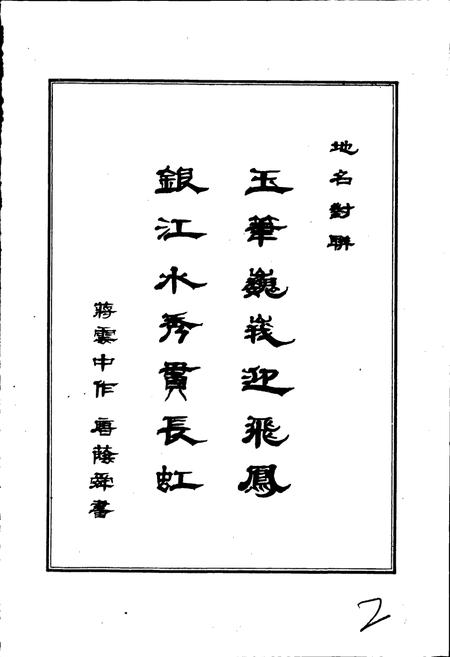 地名對聯
玉筆巍峩迎飛鳳
銀江水秀貫長虹
蔣雲中作 唐蔭舜書
2